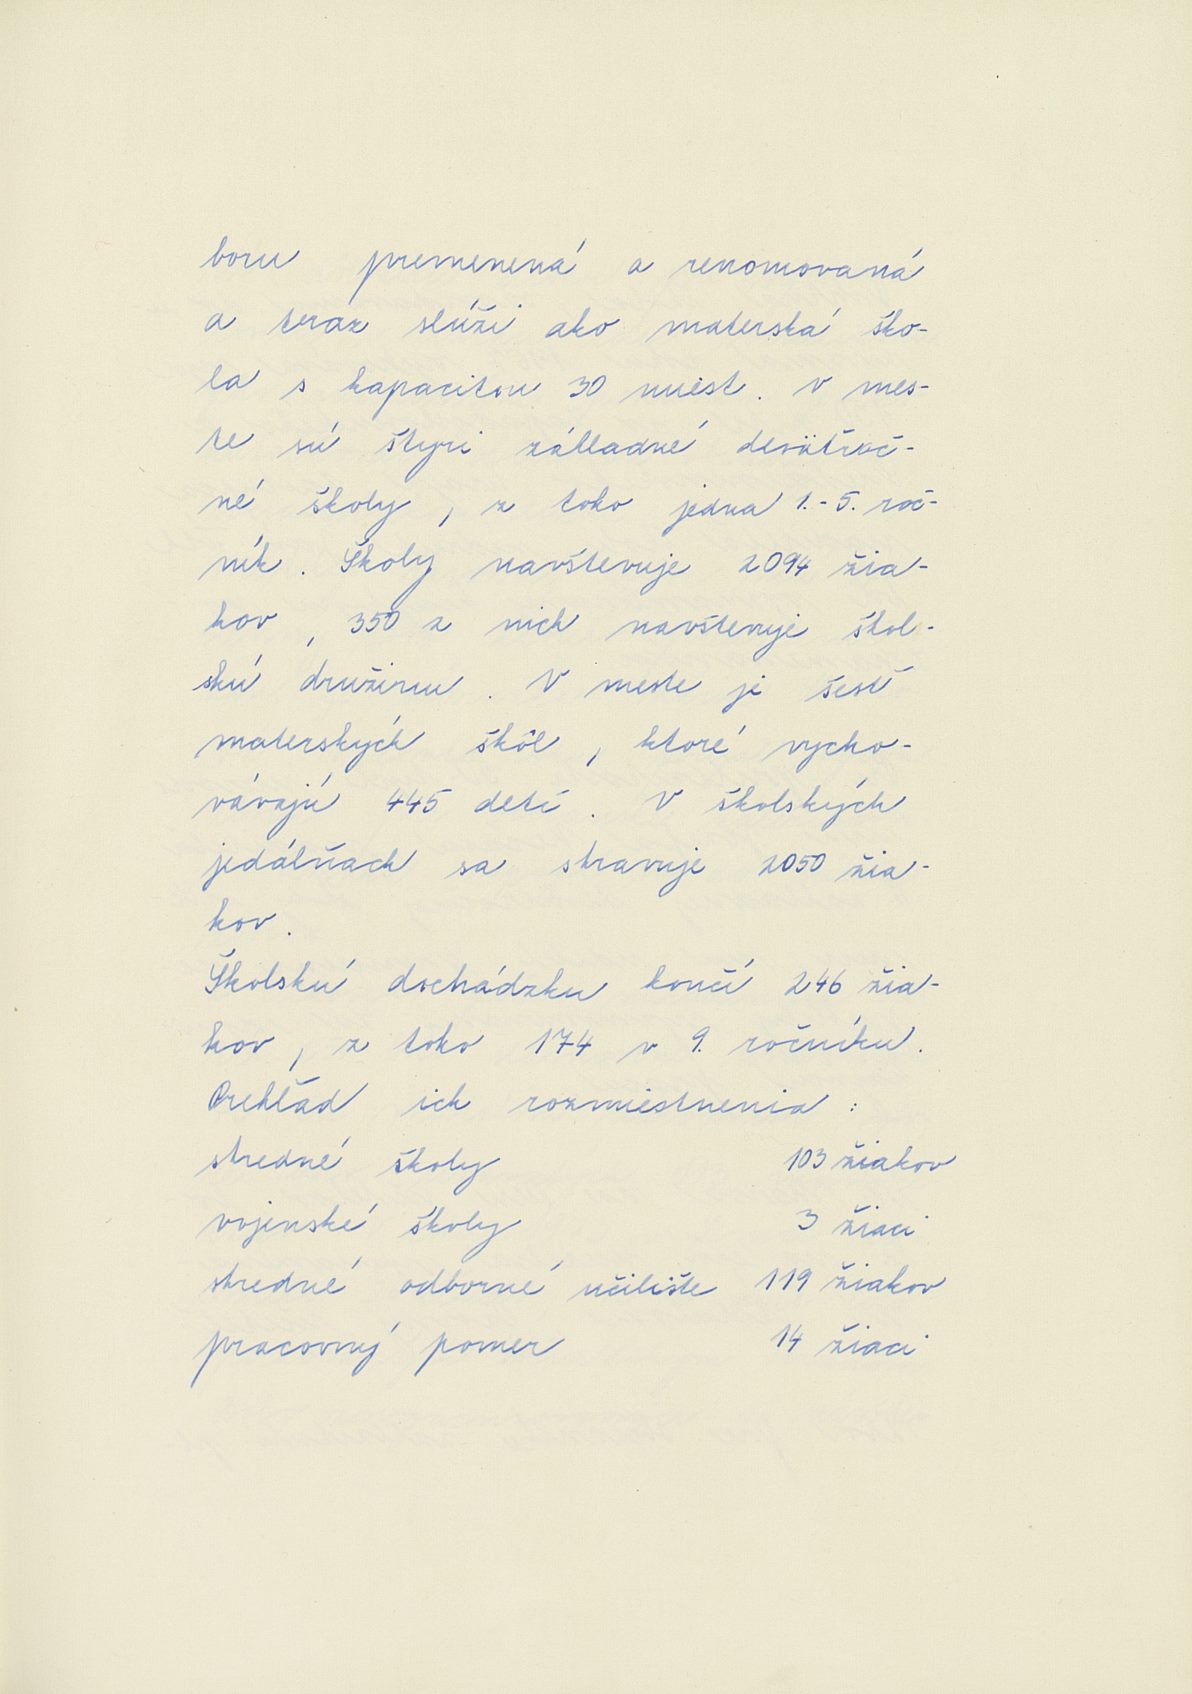 boru premenená a renomovaná
a teraz slúži ako materská ško-
la s kapacitou 30 miest. V mes-
te sú štyri základné deväťroč-
né školy, z toho jedna 1.-5. roč-
ník. Školy navštevuje 2094 žia-
kov, 350 z nich navštevuje škol-
skú družinu. V meste je šesť
materských škôl, ktoré vycho-
vávajú 445 detí. V školských
jedálňach sa stravuje 2050 žia-
kov.
Školskú dochádzku končí 246 žia-
kov, z toho 174 v 9. ročníku.
Prehľad ich rozmiestnenia:
stredné školy 103 žiakov
vojenské školy 3 žiaci
stredné odborné učilište 119 žiakov
pracovný pomer 14 žiaci